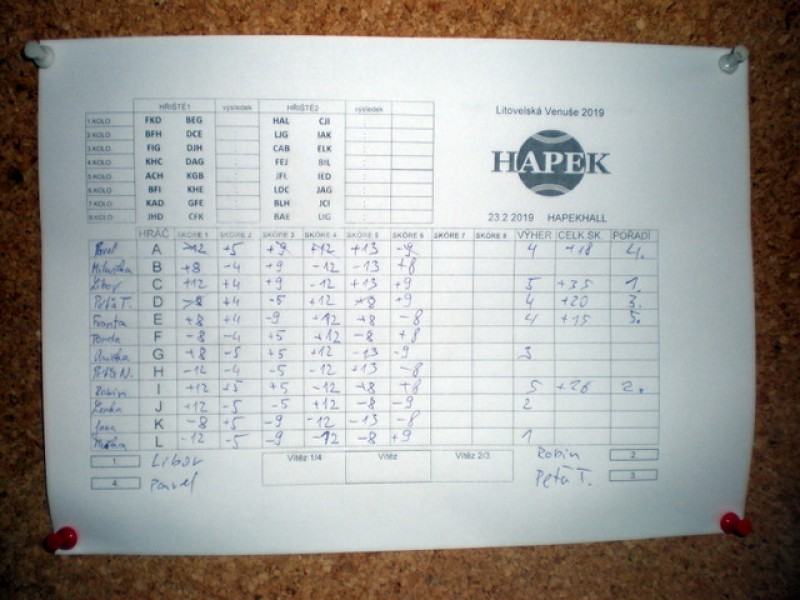 HŘIŠTĚ1 výsledek HŘIŠTĚ2 výsledek
1.KOLO FKD BEG : HAL CJI :
2.KOLO BFH DCE : LJG IAK :
3.KOLO FIG DJH : CAB ELK :
4.KOLO KHC DAG : FEJ BIL :
5.KOLO ACH KGB : JFL IED :
6.KOLO BFI KHE : LDC JAG :
7.KOLO KAD GFE : BLH JCI :
8.KOLO JHD CFK : BAE LIG :
Litovelská Venuše 2019
HAPEK
23.2 2019 HAPEKHALL
HRÁČ SKÓRE 1 SKÓRE 2 SKÓRE 3 SKÓRE 4 SKÓRE 5 SKÓRE 6 SKÓRE 7 SKÓRE 8 VÝHER CELK SK. POŘADÍ
Pavel A -12 +5 +9 +12 +13 -9 4 +18 4.
B +8 -4 +9 -12 -13 +8
Libor C +12 +4 +9 -12 +13 +9 5 +35 1.
Peťa T. D +4 -5 +12 +8 +9 4 +20 3.
Franta E +8 +4 -9 +12 +8 -8 4 +15 5.
F -8 -4 +5 +12 -8 +8
G +8 -5 +5 +12 -13 -9 3
H -12 -4 -5 -12 +13 -8
Robin I +12 +5 +5 -12 +8 +8 5 +26 2.
Lenka J +12 -5 -5 +12 -8 -9 2
Jana K -8 +5 -9 -12 -13 -8
L -12 -5 -9 -12 -8 +9 1
1 Libor Vítěz 1/4 Vítěz Vítěz 2/3 Robin 2
4 Pavel Peťa T. 3